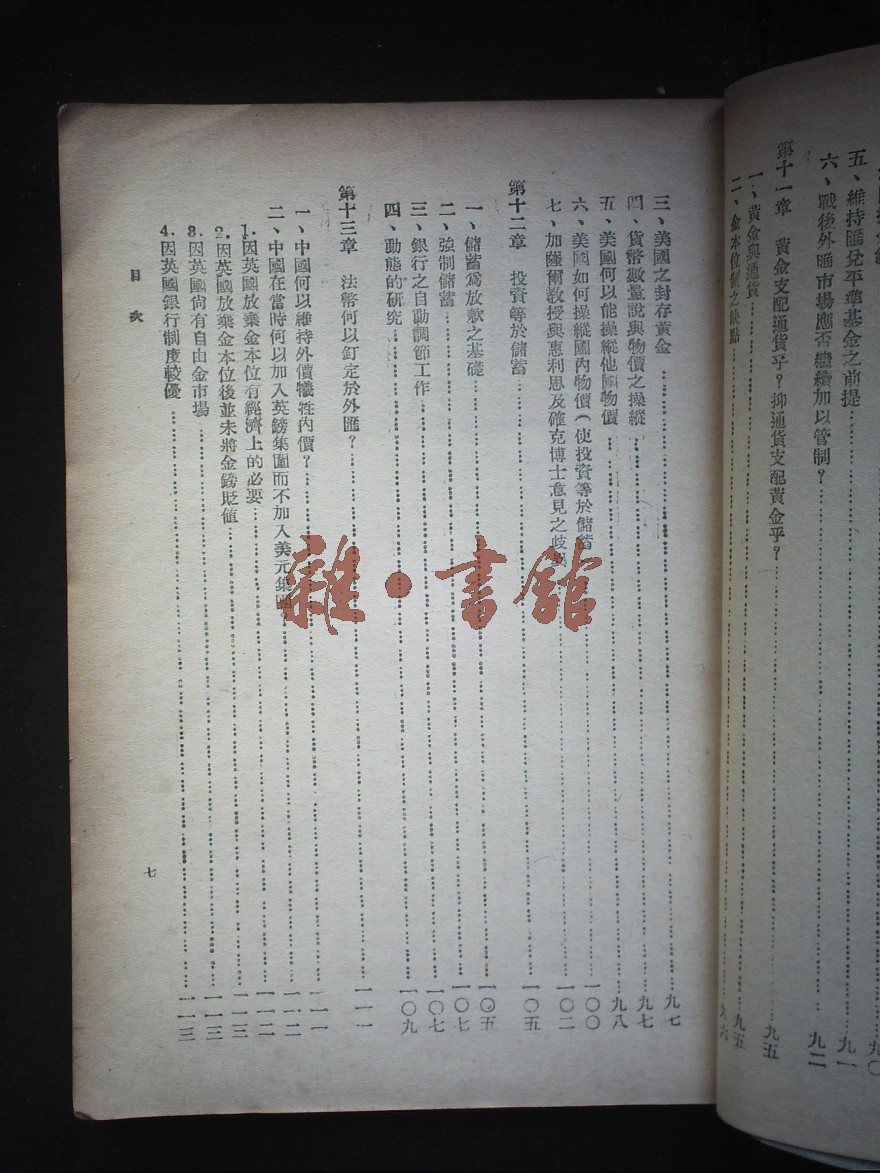 五、維持匯兌平準基金之前提……九一
六、戰後外匯市場應否繼續加以管制?……九二
第十一章 黃金支配通貨乎?抑通貨支配黃金乎?……九五
一、黃金與通貨……九五
二、金本位制之缺點……九六
三、美國之封存黃金……九七
四、貨幣數量說與物價之操縱……九七
五、美國何以能操縱他國物價……九八
六、美國如何操縱國內物價(使投資等於儲蓄……一〇〇
七、加薩爾教授與惠利思及確克博士意見之歧異……一〇二
第十二章 投資等於儲蓄……一〇五
一、儲蓄爲放款之基礎……一〇五
二、強制儲蓄……一〇七
三、銀行之自動調節工作……一〇七
四、動態的研究……一〇九
第十三章 法幣何以釘定於外匯?……一一一
一、中國何以維持外價犧牲內價?……一一一
二、中國在當時何以加入英鎊集團而不加入美元集團……一一二
1.因英國放棄金本位有經濟上的必要……一一二
2.因英國放棄金本位後並未將金鎊貶值……一一三
3.因英國尚有自由金市場……一一三
4.因英國銀行制度較優……一一三
目次
七
雜·書館